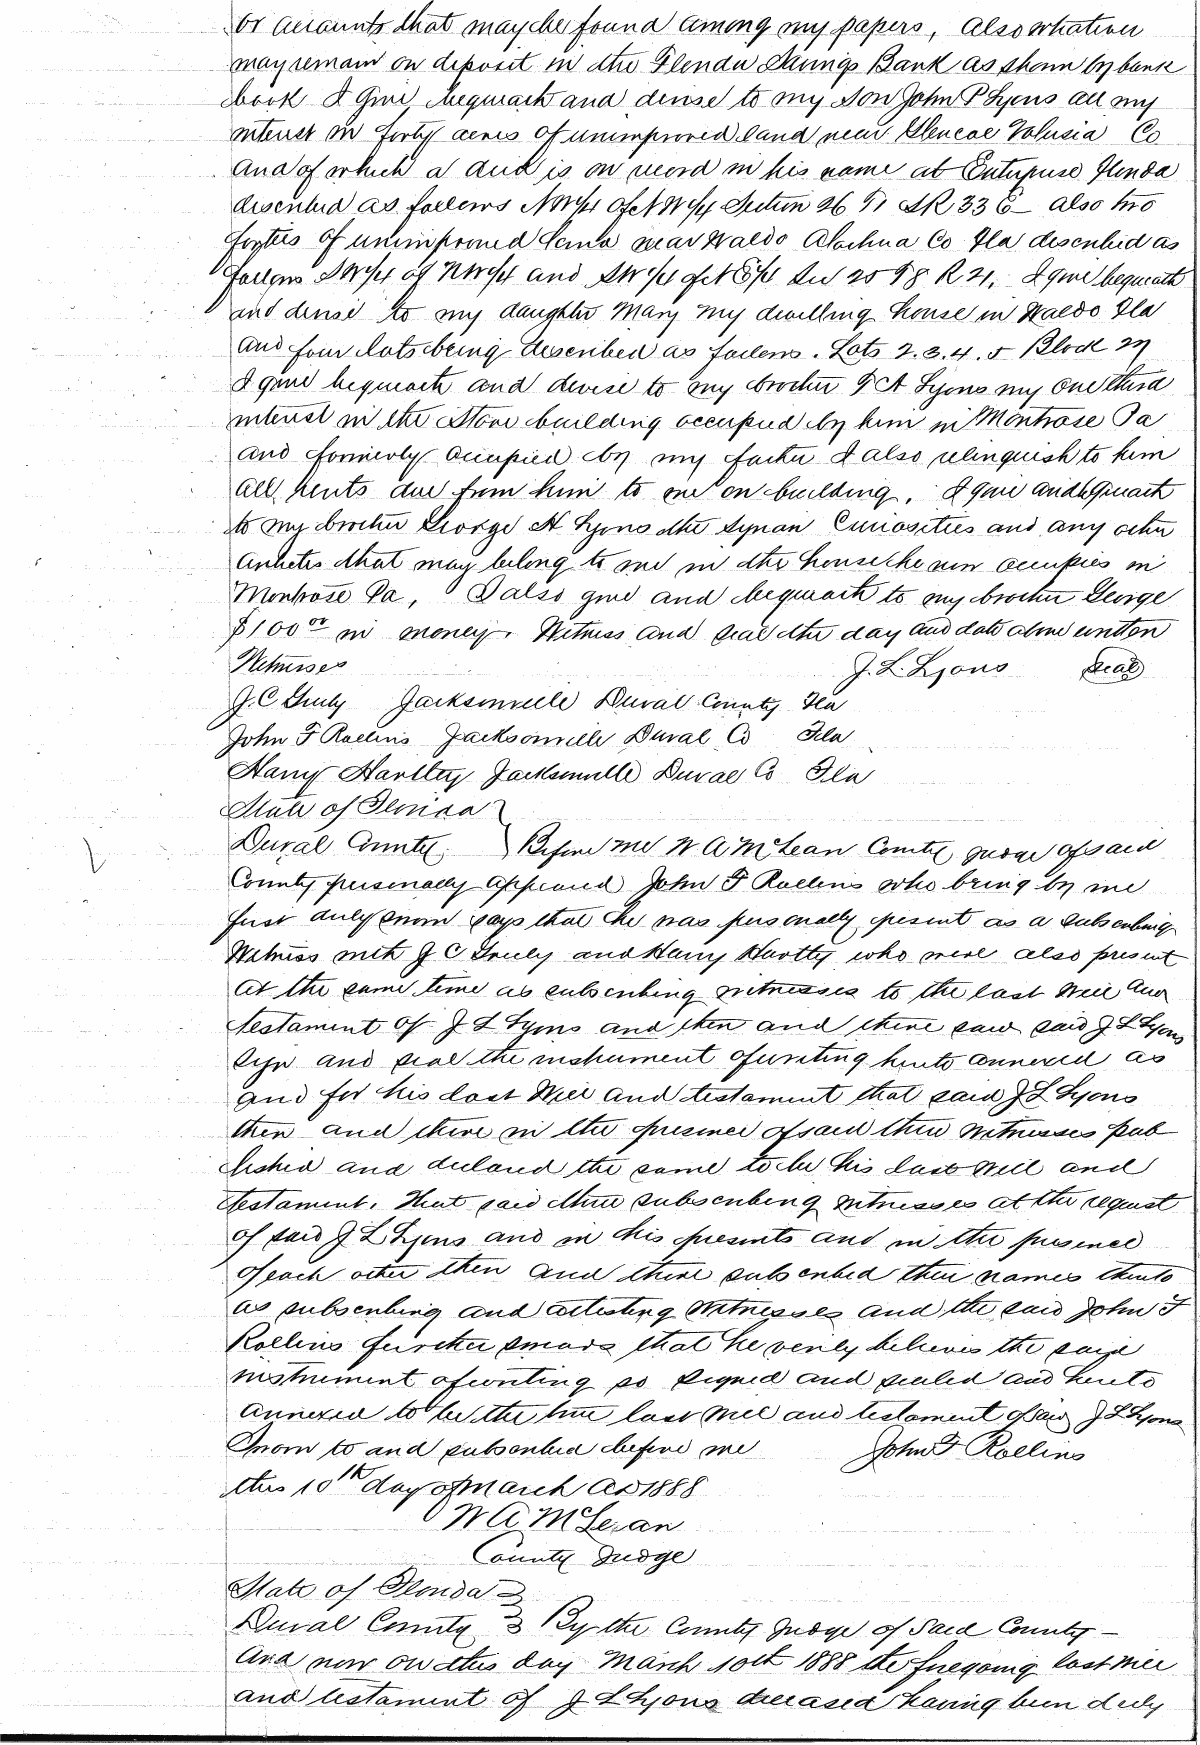 or accounts that may be found among my papers, Also whatever
may remain on deposit in the Florida Savings Bank as shown by bank
book I Give, bequeath and devise to my Son John P Lyons all my
interest in forty acres of unimproved land near Glencoe Volusia Co
And of which a deed is on record in his name at Enterprise Florida
described as follows NW1/4 of NW1/4 Section 26 T1 SR 33 E - also two
forties of unimproved land near Waldo Alachua Co Fla described as
follows SW1/4 of NW1/4 and SW1/4 of NE1/4 Sec 25 T8 R 21. I give bequeath
and devise to my daughter Mary my dwelling house in Waldo Fla
and four lots being described as follows. Lots 2.3.4.5 Block 27
I give bequeath and devise to my brother T A Lyons my one third
interest in the Store building occupied by him in Montrose Pa
and formerly occupied by my father I also relinquish to him
all rents due from him to me on building. I give and bequeath
to my brother George H Lyons the Syrian Curiosities and any other
articles that may belong to me in the house he now occupies in
Montrose Pa, I also give and bequeath to my brother George
$100.00 in money. Witness and seal the day and date above written
Witnesses J. L. Lyons seal
J. C Greely Jacksonville Duval County Fla
John F Rollins Jacksonville Duval Co Fla
Harry Hartley Jacksonville Duval Co Fla
State of Florida
Duval County } Before me W A McLean County Judge of said
County personally appeared John F Rollins who being by me
first duly sworn says that he was personally present as a subscribing
Witness with J C Greely and Harry Hartley who were also present
at the same time as subscribing witnesses to the last Will and
testament of J L Lyons and then and there saw said J L Lyons
sign and seal the instrument of writing hereto annexed as
and for his last Will and testament that said J L Lyons
then and there in the presence of said three witnesses pub
lished and declared the same to be his last will and
testament. That said three subscribing witnesses at the request
of said J L Lyons and in his presents and in the presence
of each other then and there subscribed their names thereto
as subscribing and attesting Witnesses and the said John F
Rollins further swears that he verily believes the said
instrument of writing so signed and sealed and hereto
annexed to be the true last will and testament of said J L Lyons
Sworn to and subscribed before me John F Rollins
this 10th day of March AD 1888
W A McLean
County Judge
State of Florida }
Duval County } By the County Judge of Said County -
And now on this day March 10th 1888 the foregoing last will
and testament of J L Lyons deceased having been duly